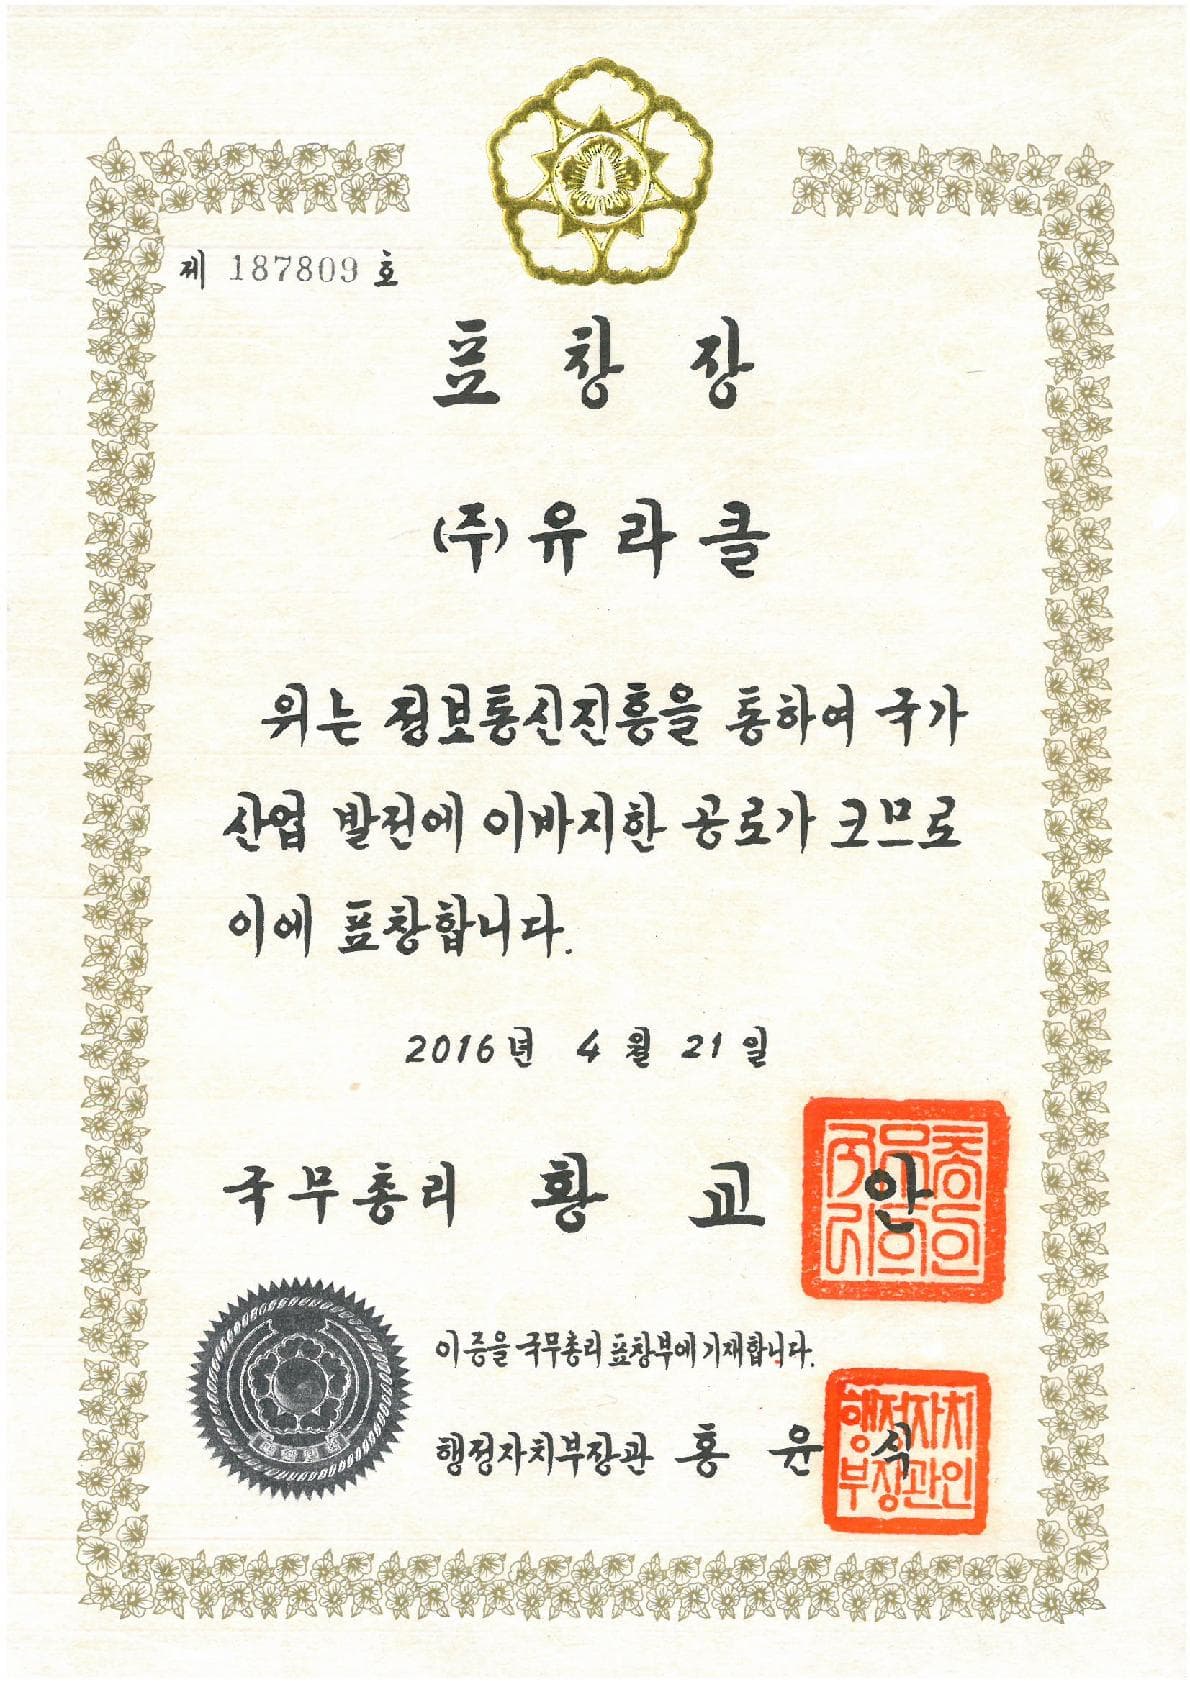 제 187809 호
표창장
(주)유라클
위는 정보통신진흥을 통하여 국가
산업 발전에 이바지한 공로가 크므로
이에 표창합니다.
2016년 4월 21일
국무총리 황교안
이 증을 국무총리 표창부에 기재합니다.
행정자치부장관 홍윤식
행정자치
부장관인